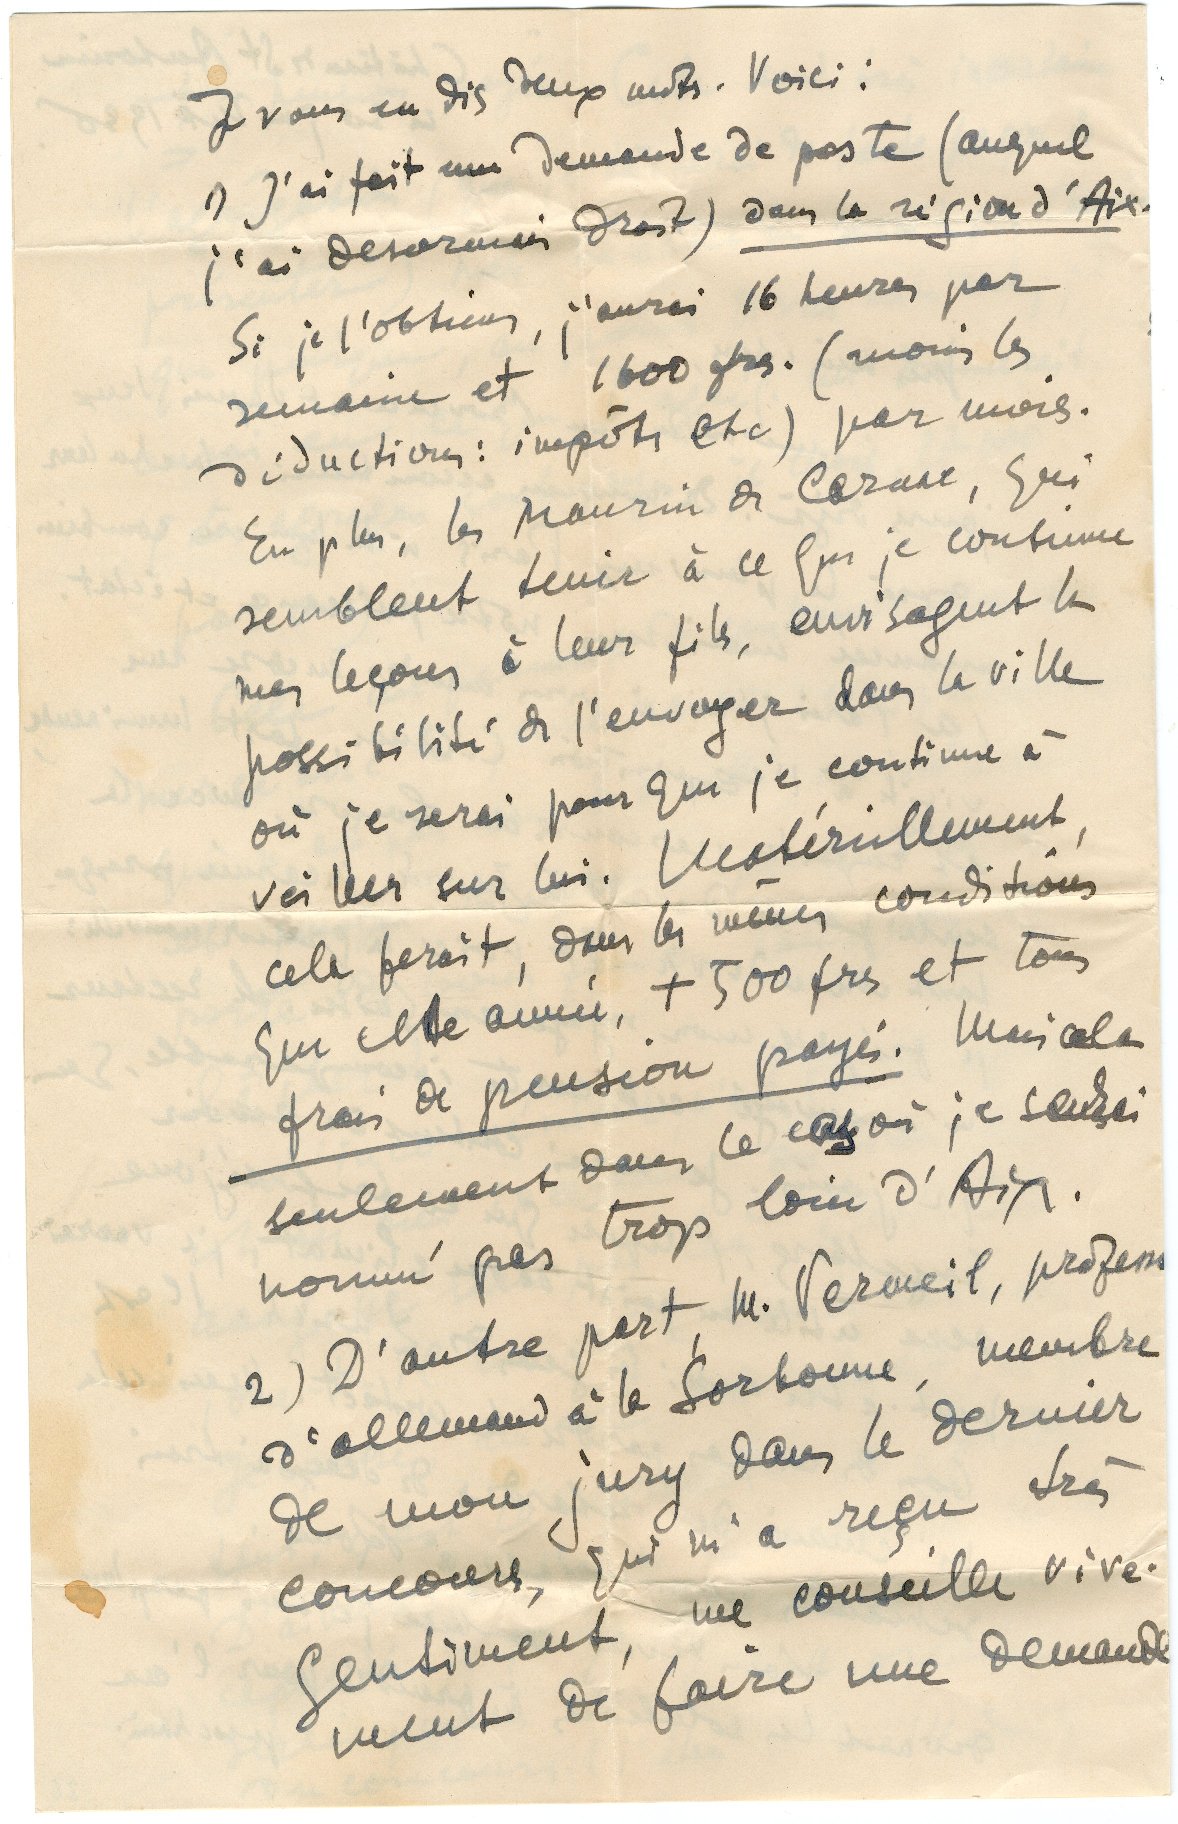 Je vous en dis deux mots. Voici :
1) J'ai fait une demande de poste (auquel
j'ai desormais droit) dans la région d'Aix.
Si je l'obtiens, j'aurai 16 heures par
semaine et 1600 frs. (moins les
déductions : impôts etc) par mois.
En plus, les Maurin de Carnac, qui
semblent tenir à ce que je continue
mes leçons à leur fils, envisagent la
possibilité de l'envoyer dans la ville
où je serai pour que je continue à
veiller sur lui. Matériellement,
cela ferait, dans les mêmes conditions
que cette année, + 500 frs et tous
frais de pension payés. Mais cela
seulement dans le cas où je serai
nommé pas trop loin d'Aix.
2) D'autre part, M. Vermeil, profess
d'allemand à la Sorbonne, membre
de mon jury dans le dernier
concours, qui m'a reçu très
gentiment, me conseille vive-
ment de faire une demande